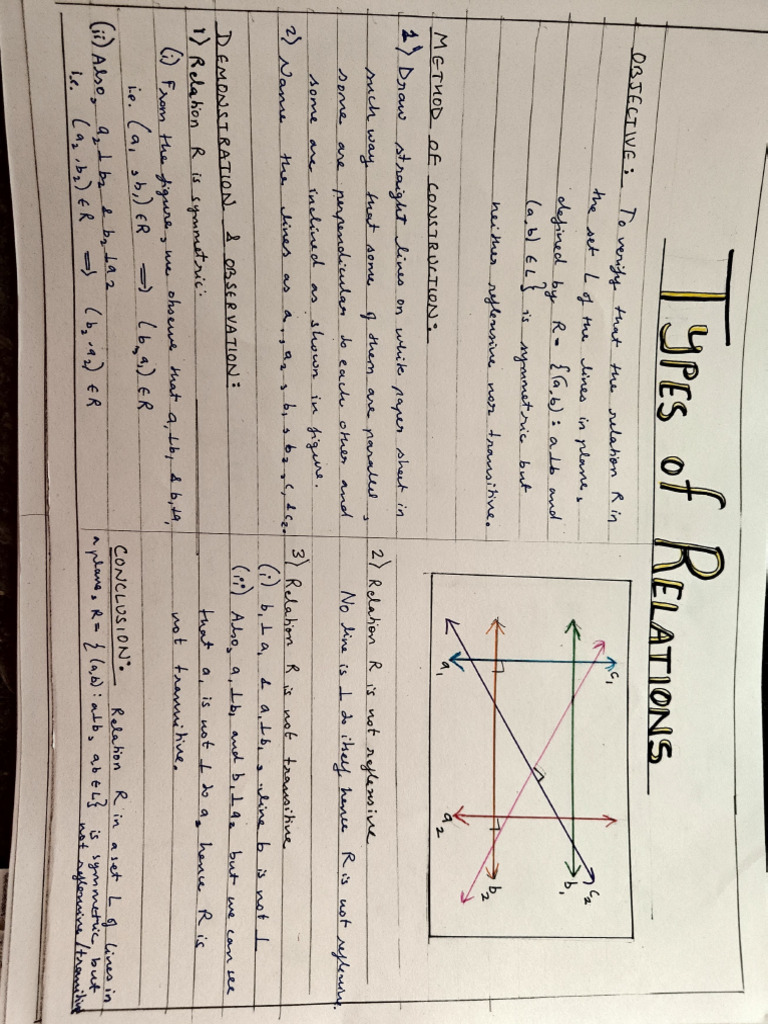 TYPES of RELATIONS
OBJECTIVE: To verify that the relation R in
the set L of the lines in plane,
defined by R = {(a,b) : a⊥b and
(a,b) ∈ L} is symmetric but
neither reflexive nor transitive.
METHOD OF CONSTRUCTION:
1) Draw straight lines on white paper sheet in
such way that some of them are parallel,
some are perpendicular to each other and
some are inclined as shown in figure.
2) Name the lines as a₁, a₂, b₁, b₂, c₁ & c₂.
DEMONSTRATION & OBSERVATION:
1) Relation R is symmetric:
(i) From the figure, we observe that a₁⊥b₁ & b₁⊥a₁
i.e. (a₁, b₁) ∈ R ⟹ (b₁, a₁) ∈ R
(ii) Also, a₂⊥b₂ & b₂⊥a₂
i.e. (a₂, b₂) ∈ R ⟹ (b₂, a₂) ∈ R
c₁
c₂
b₁
b₂
a₁
a₂
2) Relation R is not reflexive
No line is ⊥ to itself hence R is not reflexive.
3) Relation R is not transitive
(i) b₁⊥a₁ & a₁⊥b₁, line b is not ⊥
(ii) Also, a₁⊥b₁ and b₁⊥a₂ but we can see
that a₁ is not ⊥ to a₂ hence R is
not transitive.
CONCLUSION: Relation R in a set L of lines in
a plane, R = {(a,b) : a⊥b, a,b ∈ L} is symmetric but
not reflexive/transitive